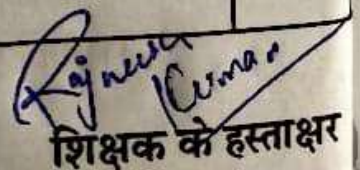 Rajneesh
Kumar
शिक्षक के हस्ताक्षर